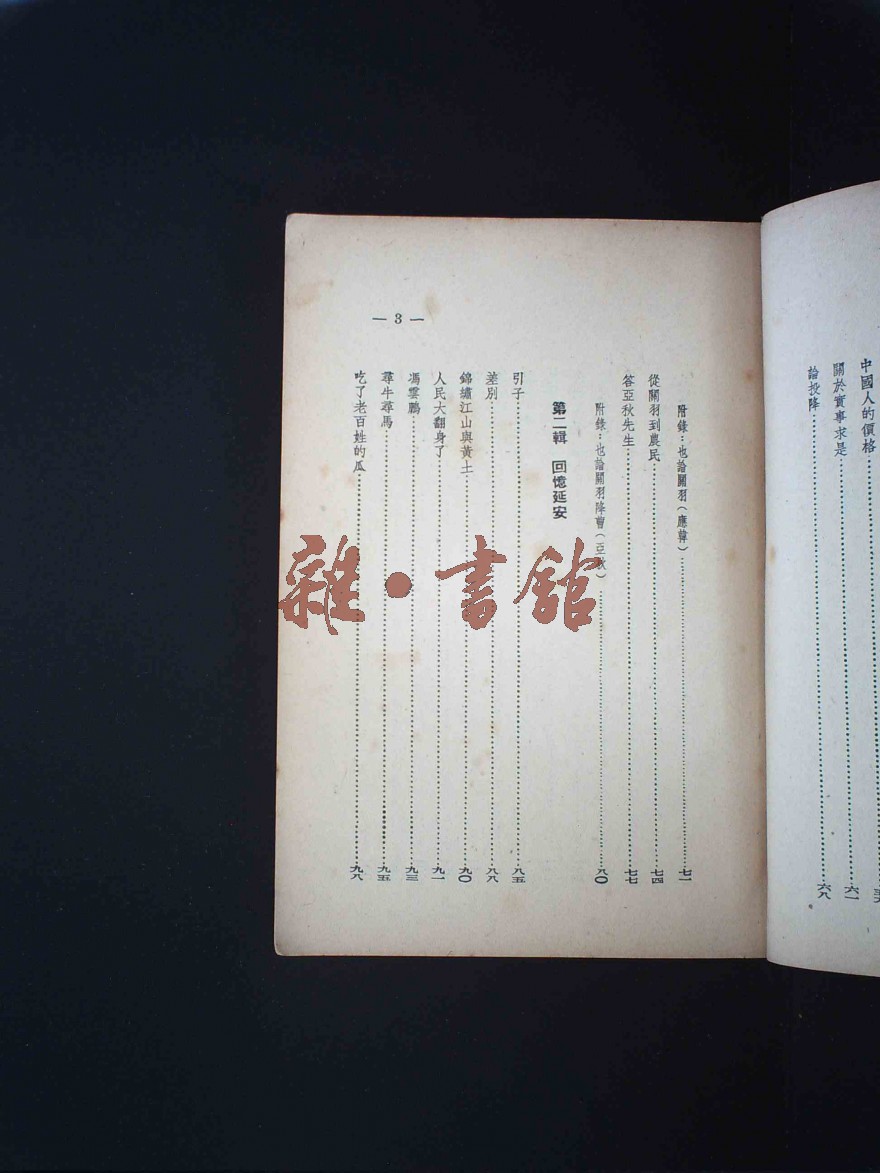 中國人的價格
關於實事求是……六一
論投降……六八
— 3 —
附錄：也論關羽（應韓）……七一
從關羽到農民……七四
答亞秋先生……七七
附錄：也論關羽降曹（亞秋）……八〇
第二輯 回憶延安
引子……八五
差別……八八
錦繡江山與黃土……九〇
人民大翻身了……九一
馮雲鵬……九三
尋牛尋馬……九五
吃了老百姓的瓜……九八
雜·書館